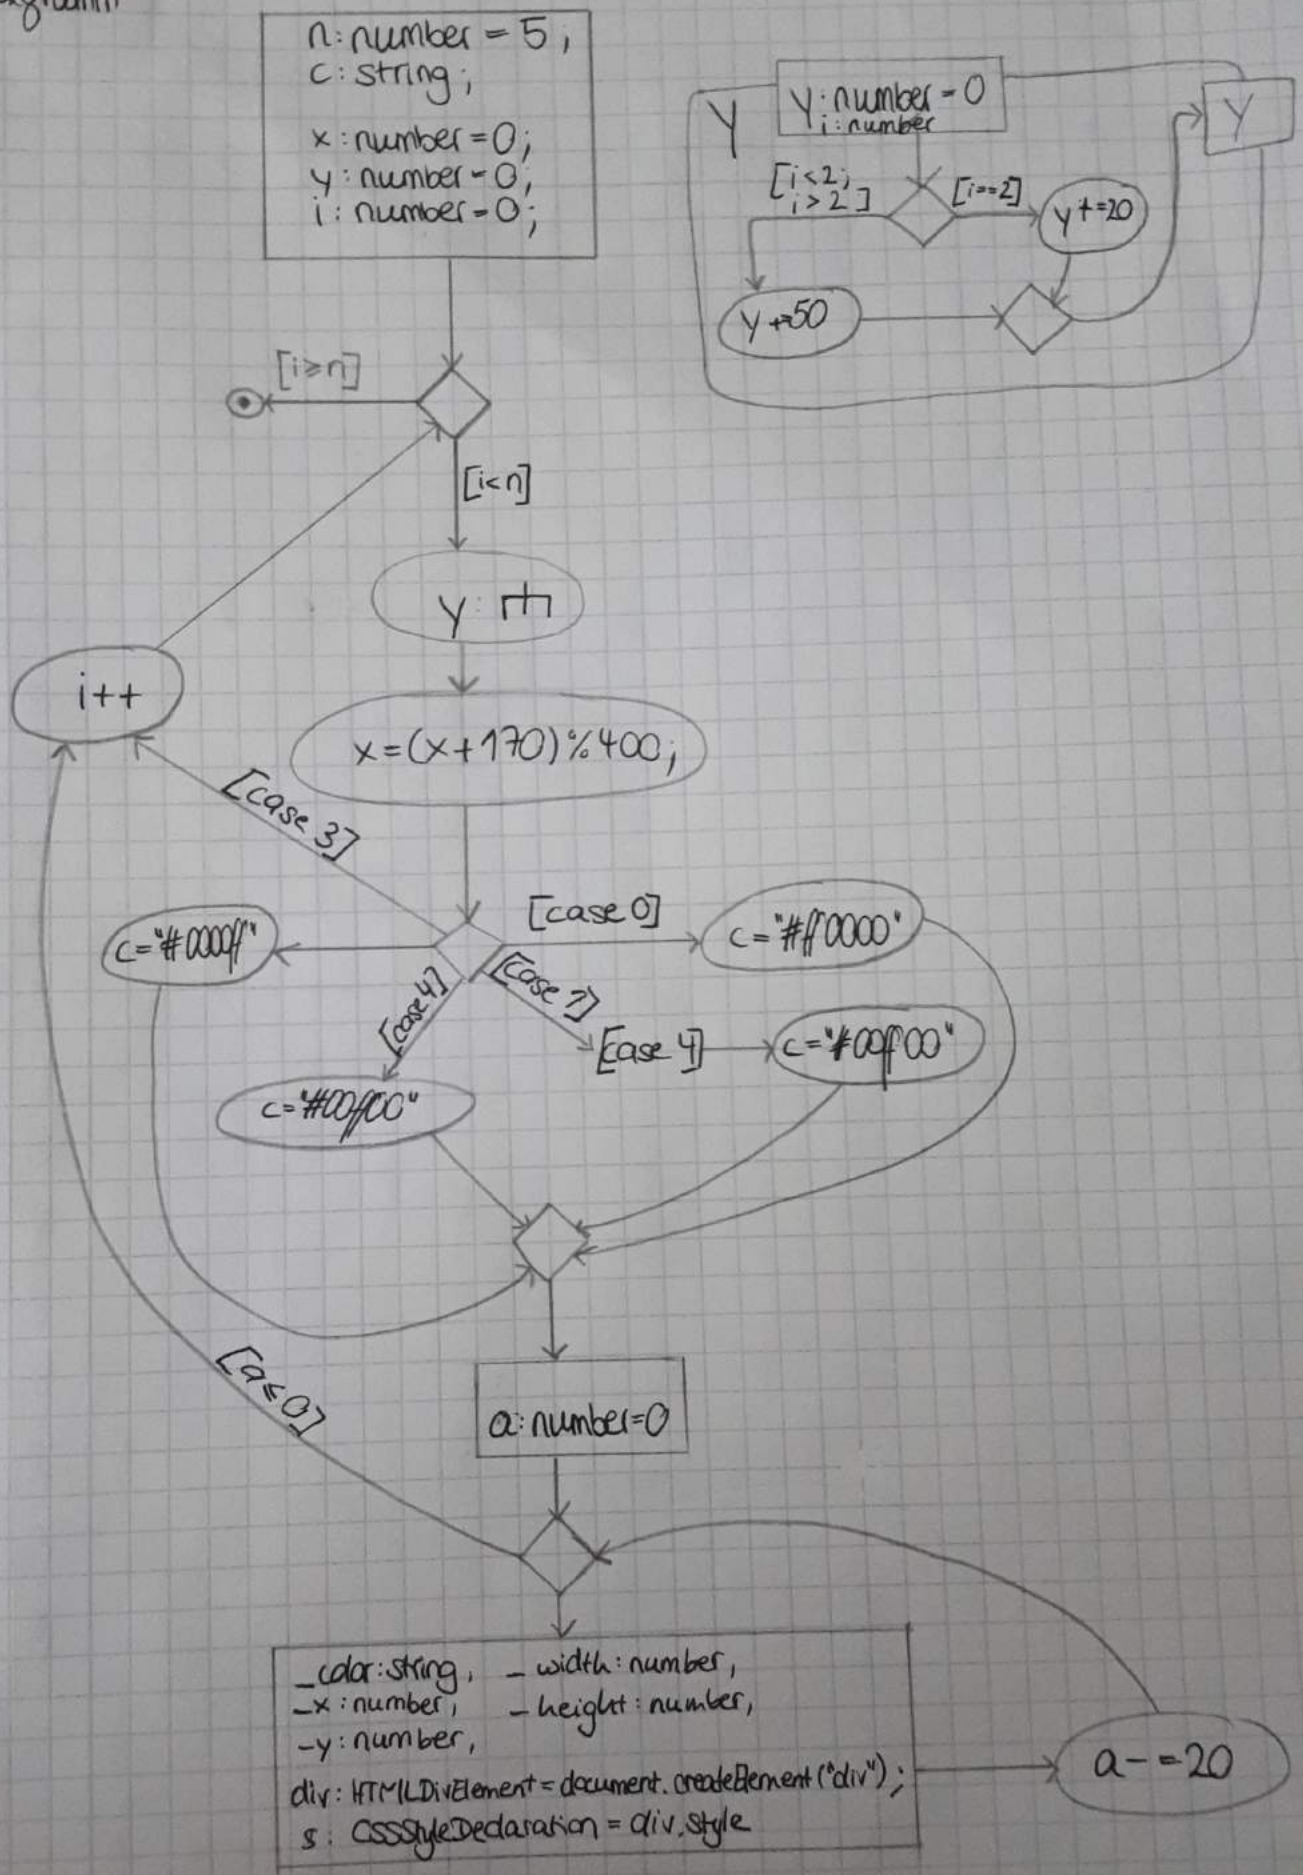 n: number = 5;
c: string;
x: number = 0;
y: number = 0;
i: number = 0;
Y
y: number = 0
i: number
Y
[i<2;
i>2]
[i==2]
y+=20
y+=50
[i≥n]
[i<n]
y:
i++
x=(x+170)%400;
[case 3]
[case 0]
c="#ff0000"
c="#0000ff"
[case 4]
[case 1]
[case 4]
c="#00ff00"
c="#00ff00"
[a≤0]
a: number=0
_color: string, _width: number,
_x: number, _height: number,
_y: number,
div: HTMLDivElement = document.createElement("div");
s: CSSStyleDeclaration = div.style
a-=20